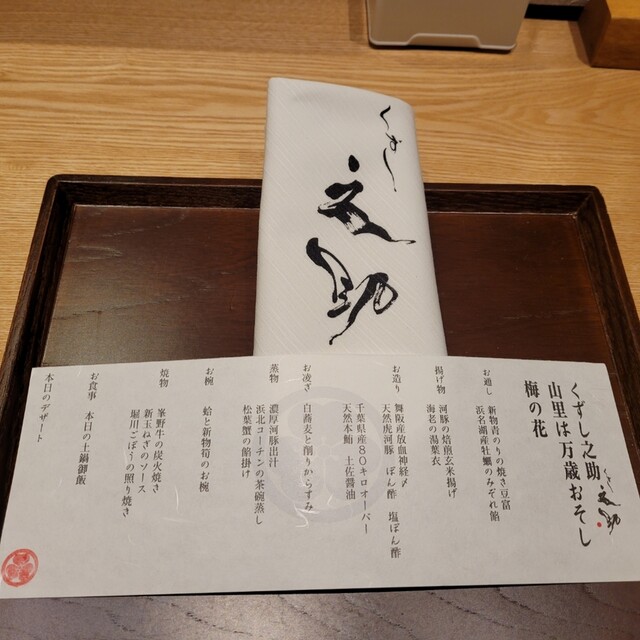 くずし
文助
くずし之助
山里は万歳おそし
梅の花
くずし
文助
お通し 新物青のりの焼き豆富
浜名湖産牡蠣のみぞれ餡
揚げ物 河豚の焙煎玄米揚げ
海老の湯葉衣
お造り 舞阪産放血神経〆
天然虎河豚 ぽん酢 塩ぽん酢
千葉県産80キロオーバー
天然本鮪 土佐醤油
お凌ぎ 白蕎麦と削りからすみ
蒸物 濃厚河豚出汁
浜北コーチンの茶碗蒸し
松葉蟹の餡掛け
お椀 蛤と新物筍のお椀
焼物 峯野牛の炭火焼き
新玉ねぎのソース
堀川ごぼうの照り焼き
お食事 本日の土鍋御飯
本日のデザート